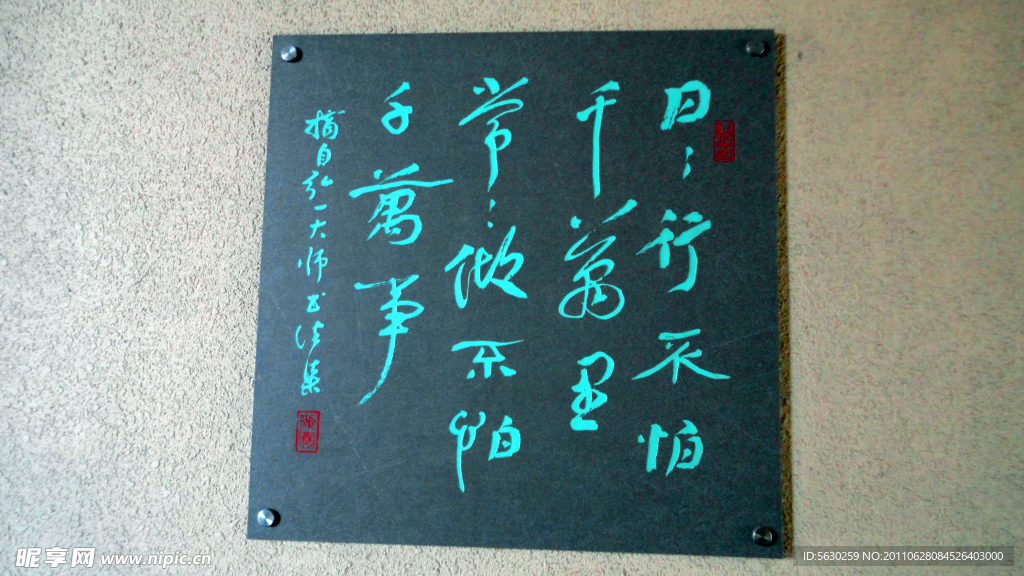 日日行不怕
千萬里
常常做不怕
千萬事
摘自弘一大师书法集
昵享网 www.nipic.cn
ID:5630259 NO:20110628084526403000